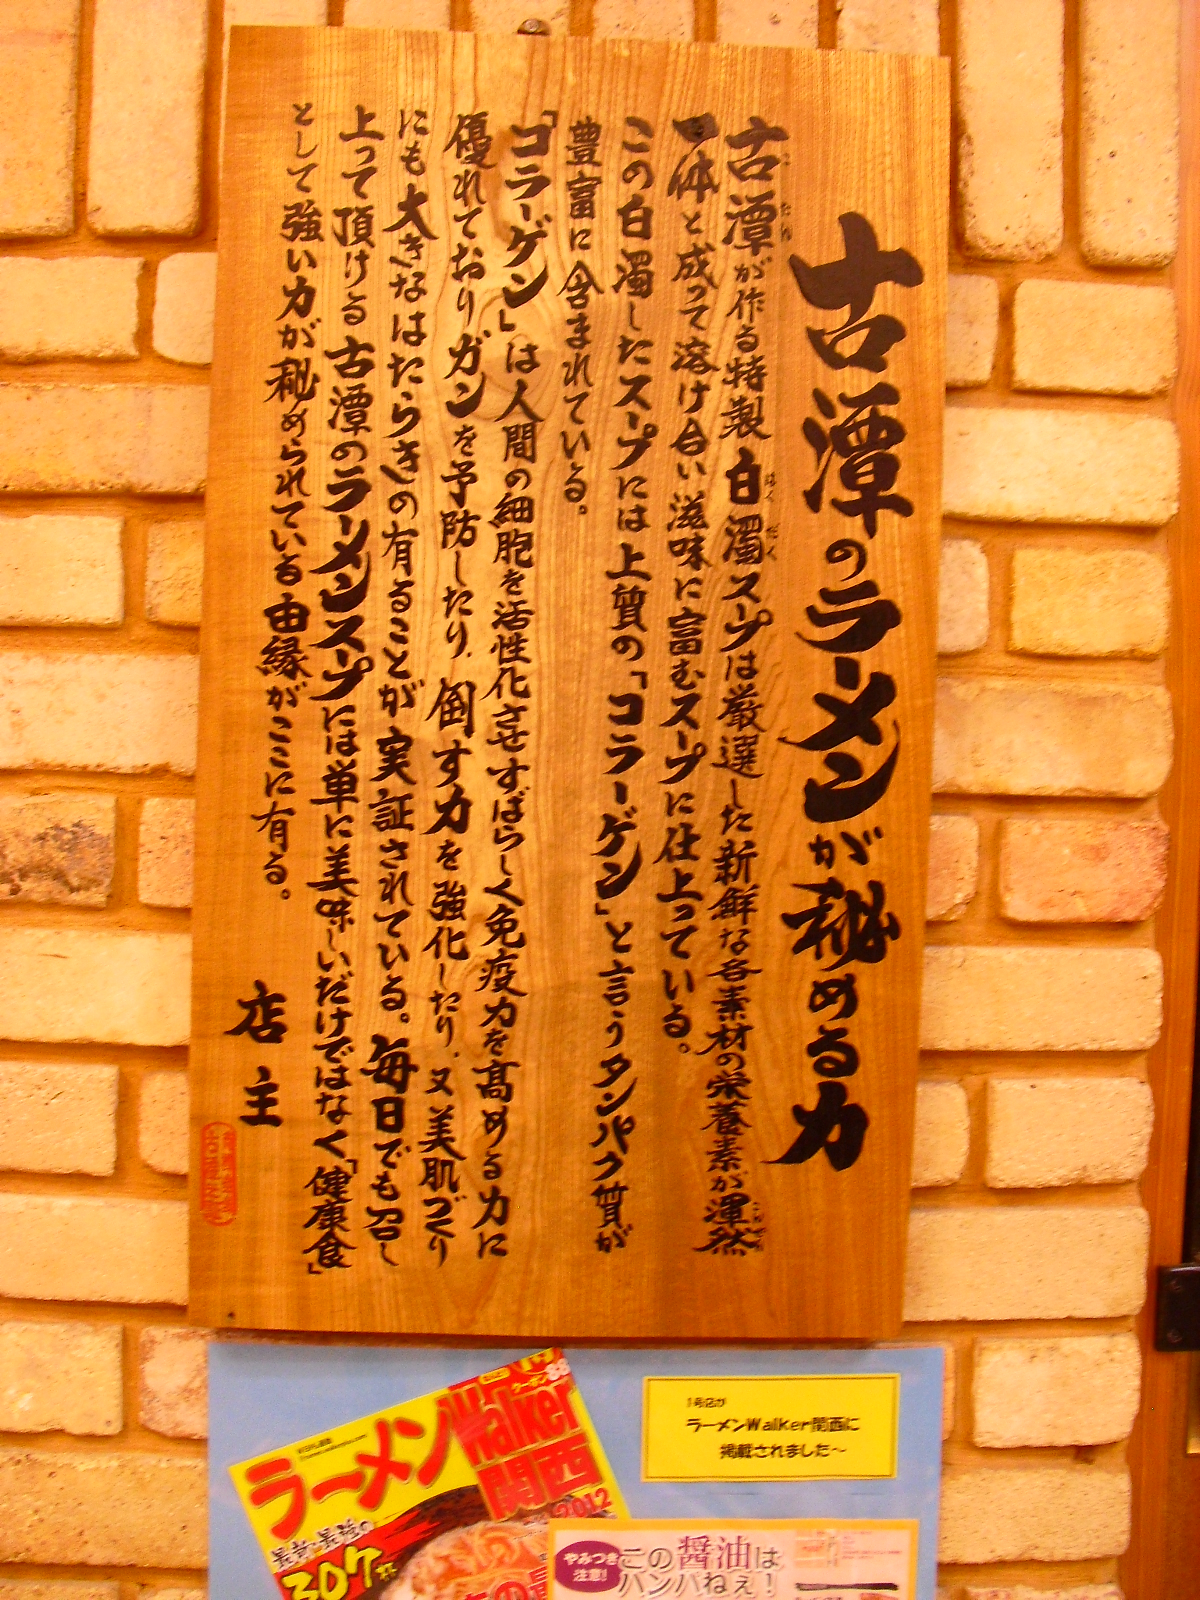 古潭のラーメンが秘める力
古潭が作る特製白濁スープは厳選した新鮮な各素材の栄養素が渾然
一体と成って溶け合い滋味に富むスープに仕上っている。
この白濁したスープには上質の「コラーゲン」と言うタンパク質が
豊富に含まれている。
「コラーゲン」は人間の細胞を活性化させすばらしく免疫力を高める力に
優れておりガンを予防したり、倒す力を強化したり、又美肌づくり
にも大きなはたらきの有ることが実証されている。毎日でも召し
上って頂ける古潭のラーメンスープには単に美味しいだけではなく「健康食」
として強い力が秘められている由縁がここに有る。
店主
ラーメンWalker
関西
2012
クーポン88
最新・最強の
307杯
1号店が
ラーメンWalker関西に
掲載されました～
やみつき
注意!
この醤油は
ハンパねぇ!